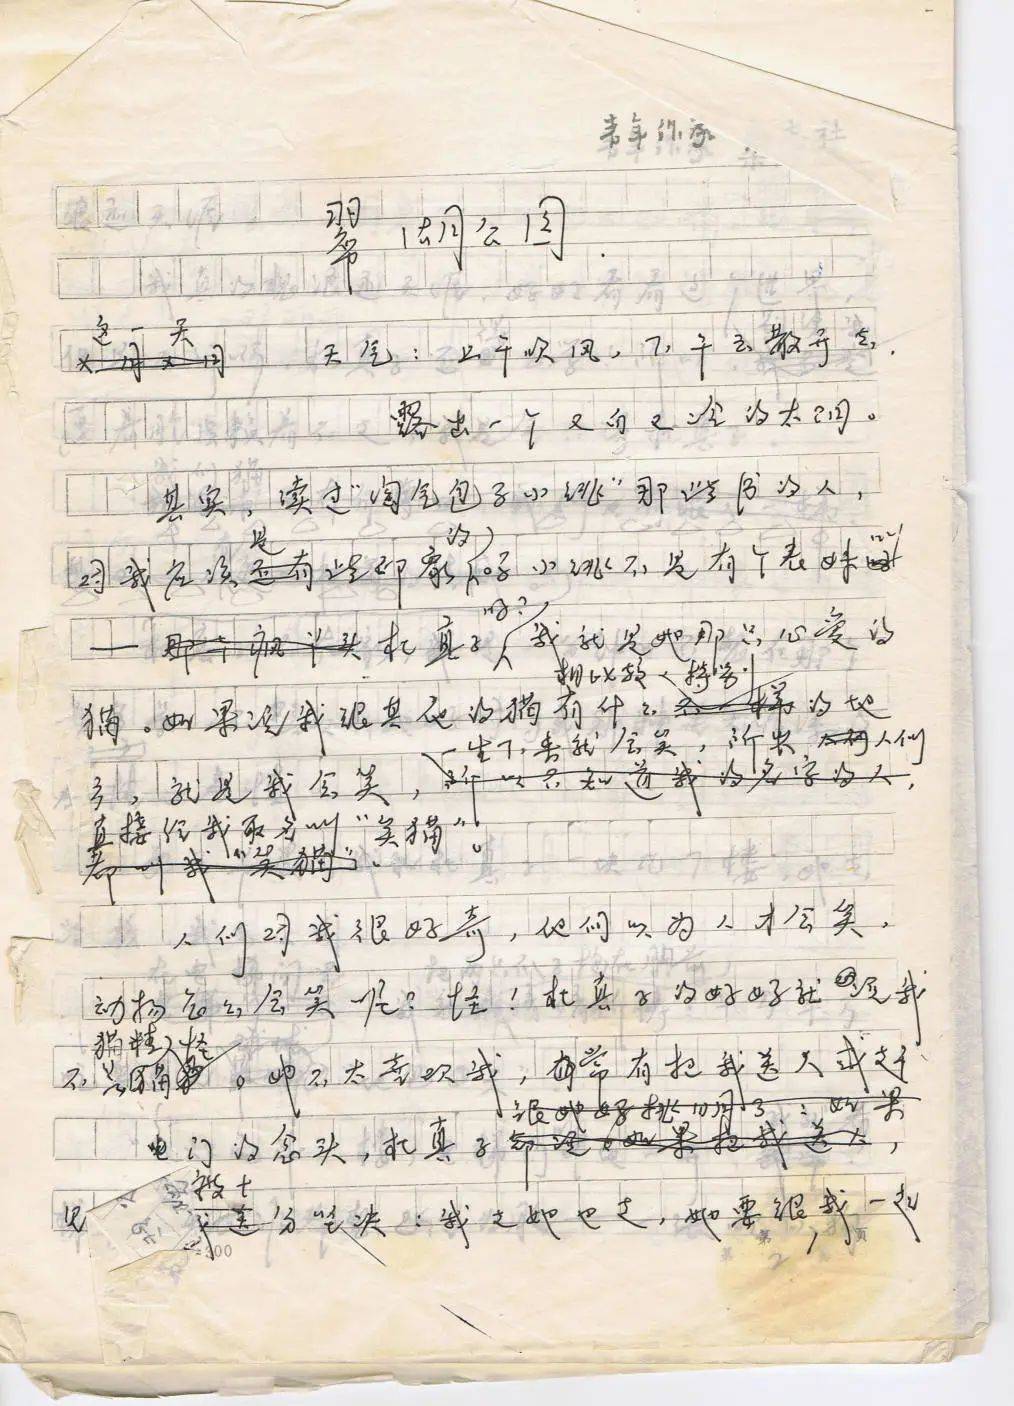 青年作家
翠湖公园
这一天
天气：上午吹风，下午云散开去，
露出一个又白又冷的太阳。
其实，读过“淘气包子小跳”那些书的人，
是 的
对我应该还有些印象
小跳不是有个表妹
吗？
——那个疯丫头杜真子 我就是她那只心爱的
相比较 特别
猫。如果说我跟其他的猫有什么不一样的地
一生下来就会笑，所以 人们
方，就是我会笑，所以不知道我的名字的人，
直接给我取名叫“笑猫”。
都叫我“笑猫”。
人们对我很好奇，他们以为人才会笑，
动物怎么会笑呢？怪！杜真子的妈妈就说我
猫精 怪
不是猫 。她不太喜欢我，常有把我送人或赶
跟她好 了：如果
出门的念头，杜真子都说如果把我送人，
她 十
分坚决：我走她也走，她要跟我一起
第 页
2